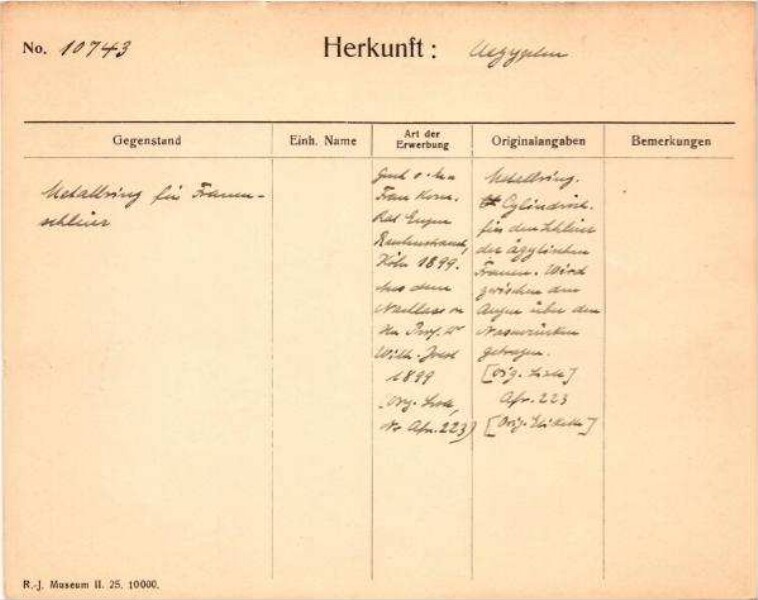 No. 10743 Herkunft: Aegypten
Gegenstand Einh. Name Art der Erwerbung Originalangaben Bemerkungen
Metallring für Frauen-
schleier
Frau Kom.
Rat Eugen
Rautenstrauch,
Köln 1899.
Aus dem
Nachlass v.
Hn Prof. Dr
Wilh. Joest
1899
Orig. Liste,
No Afr. 223)
Metallring.
Cylindrisch.
für den Schleier
der ägyptischen
Frauen. Wird
zwischen den
Augen über dem
Nasenrücken
getragen.
[Orig. Liste]
Afr. 223
[Orig. Etikette]
R.-J. Museum II. 25. 10000.